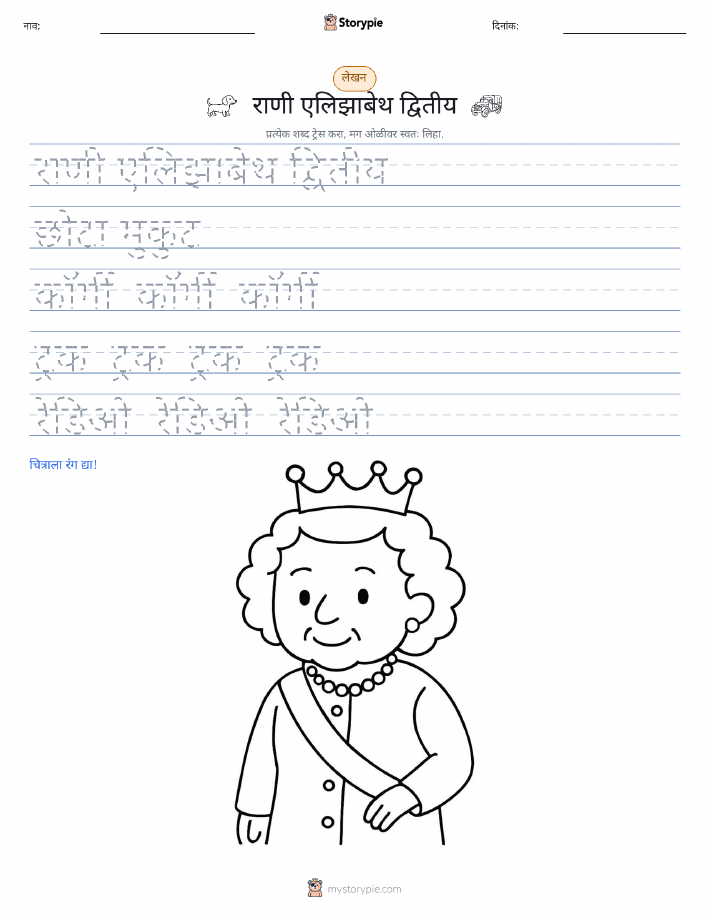 नाव:
Storypie
दिनांक:
लेखन
राणी एलिझाबेथ द्वितीय
प्रत्येक शब्द ट्रेस करा, मग ओळीवर स्वतः लिहा.
राणी एलिझाबेथ द्वितीय
छोटा मुकुट
कॉर्गी कॉर्गी कॉर्गी
ट्रक ट्रक ट्रक ट्रक
रेडिओ रेडिओ रेडिओ
चित्राला रंग द्या!
mystorypie.com